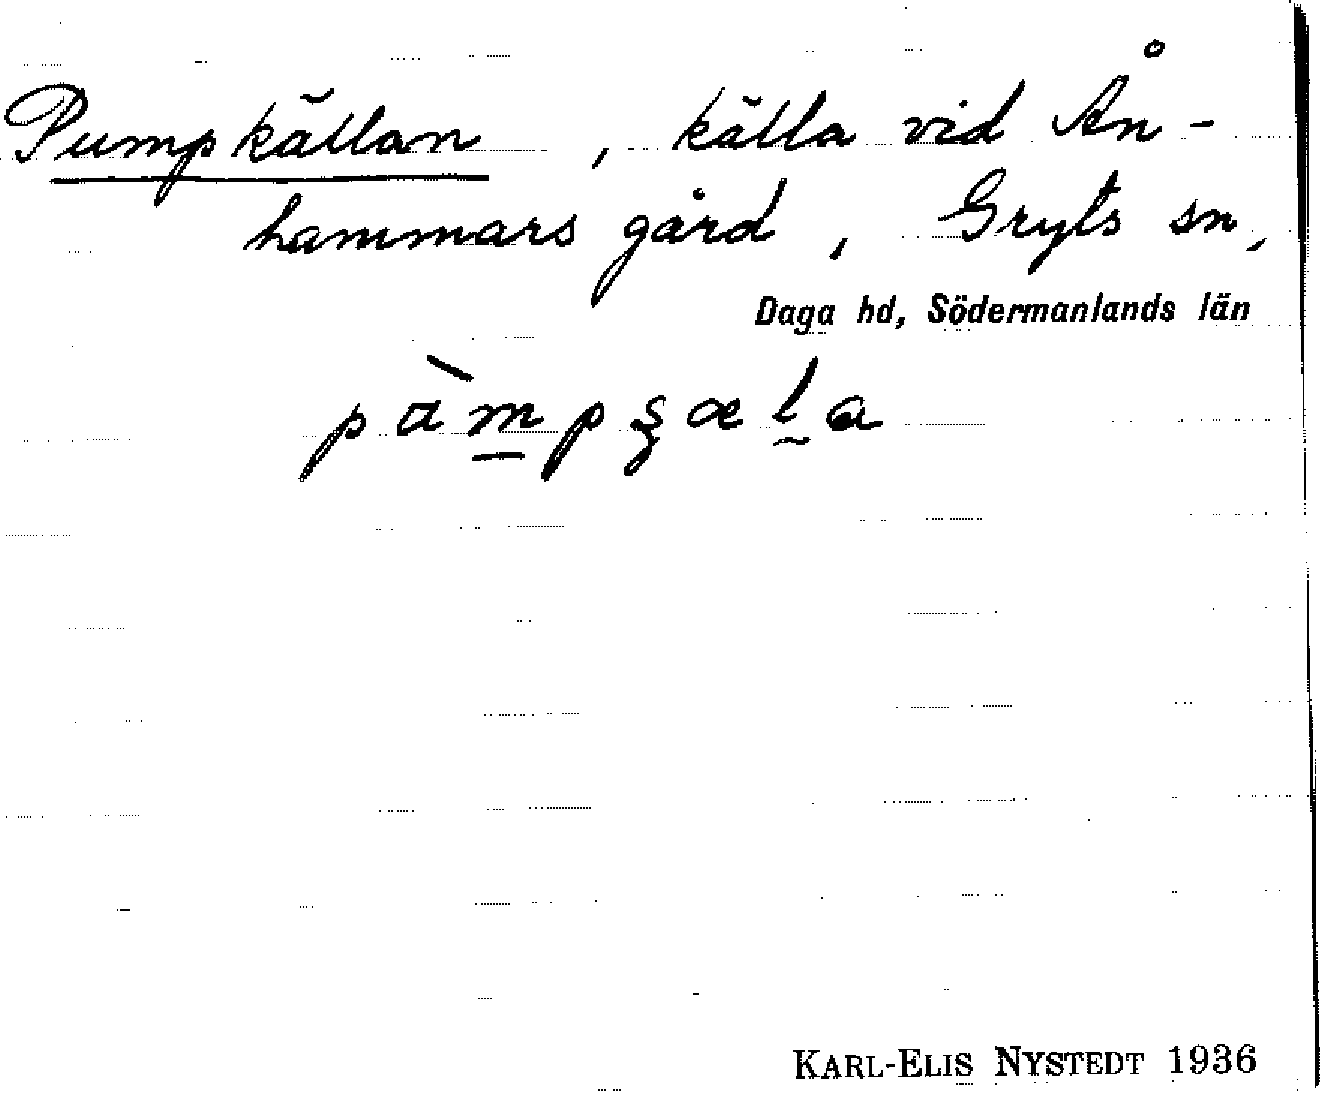 Pumpkällan, källa vid Ån-
hammars gård, Gryts sn,
Daga hd, Södermanlands län
KARL-ELIS NYSTEDT 1936